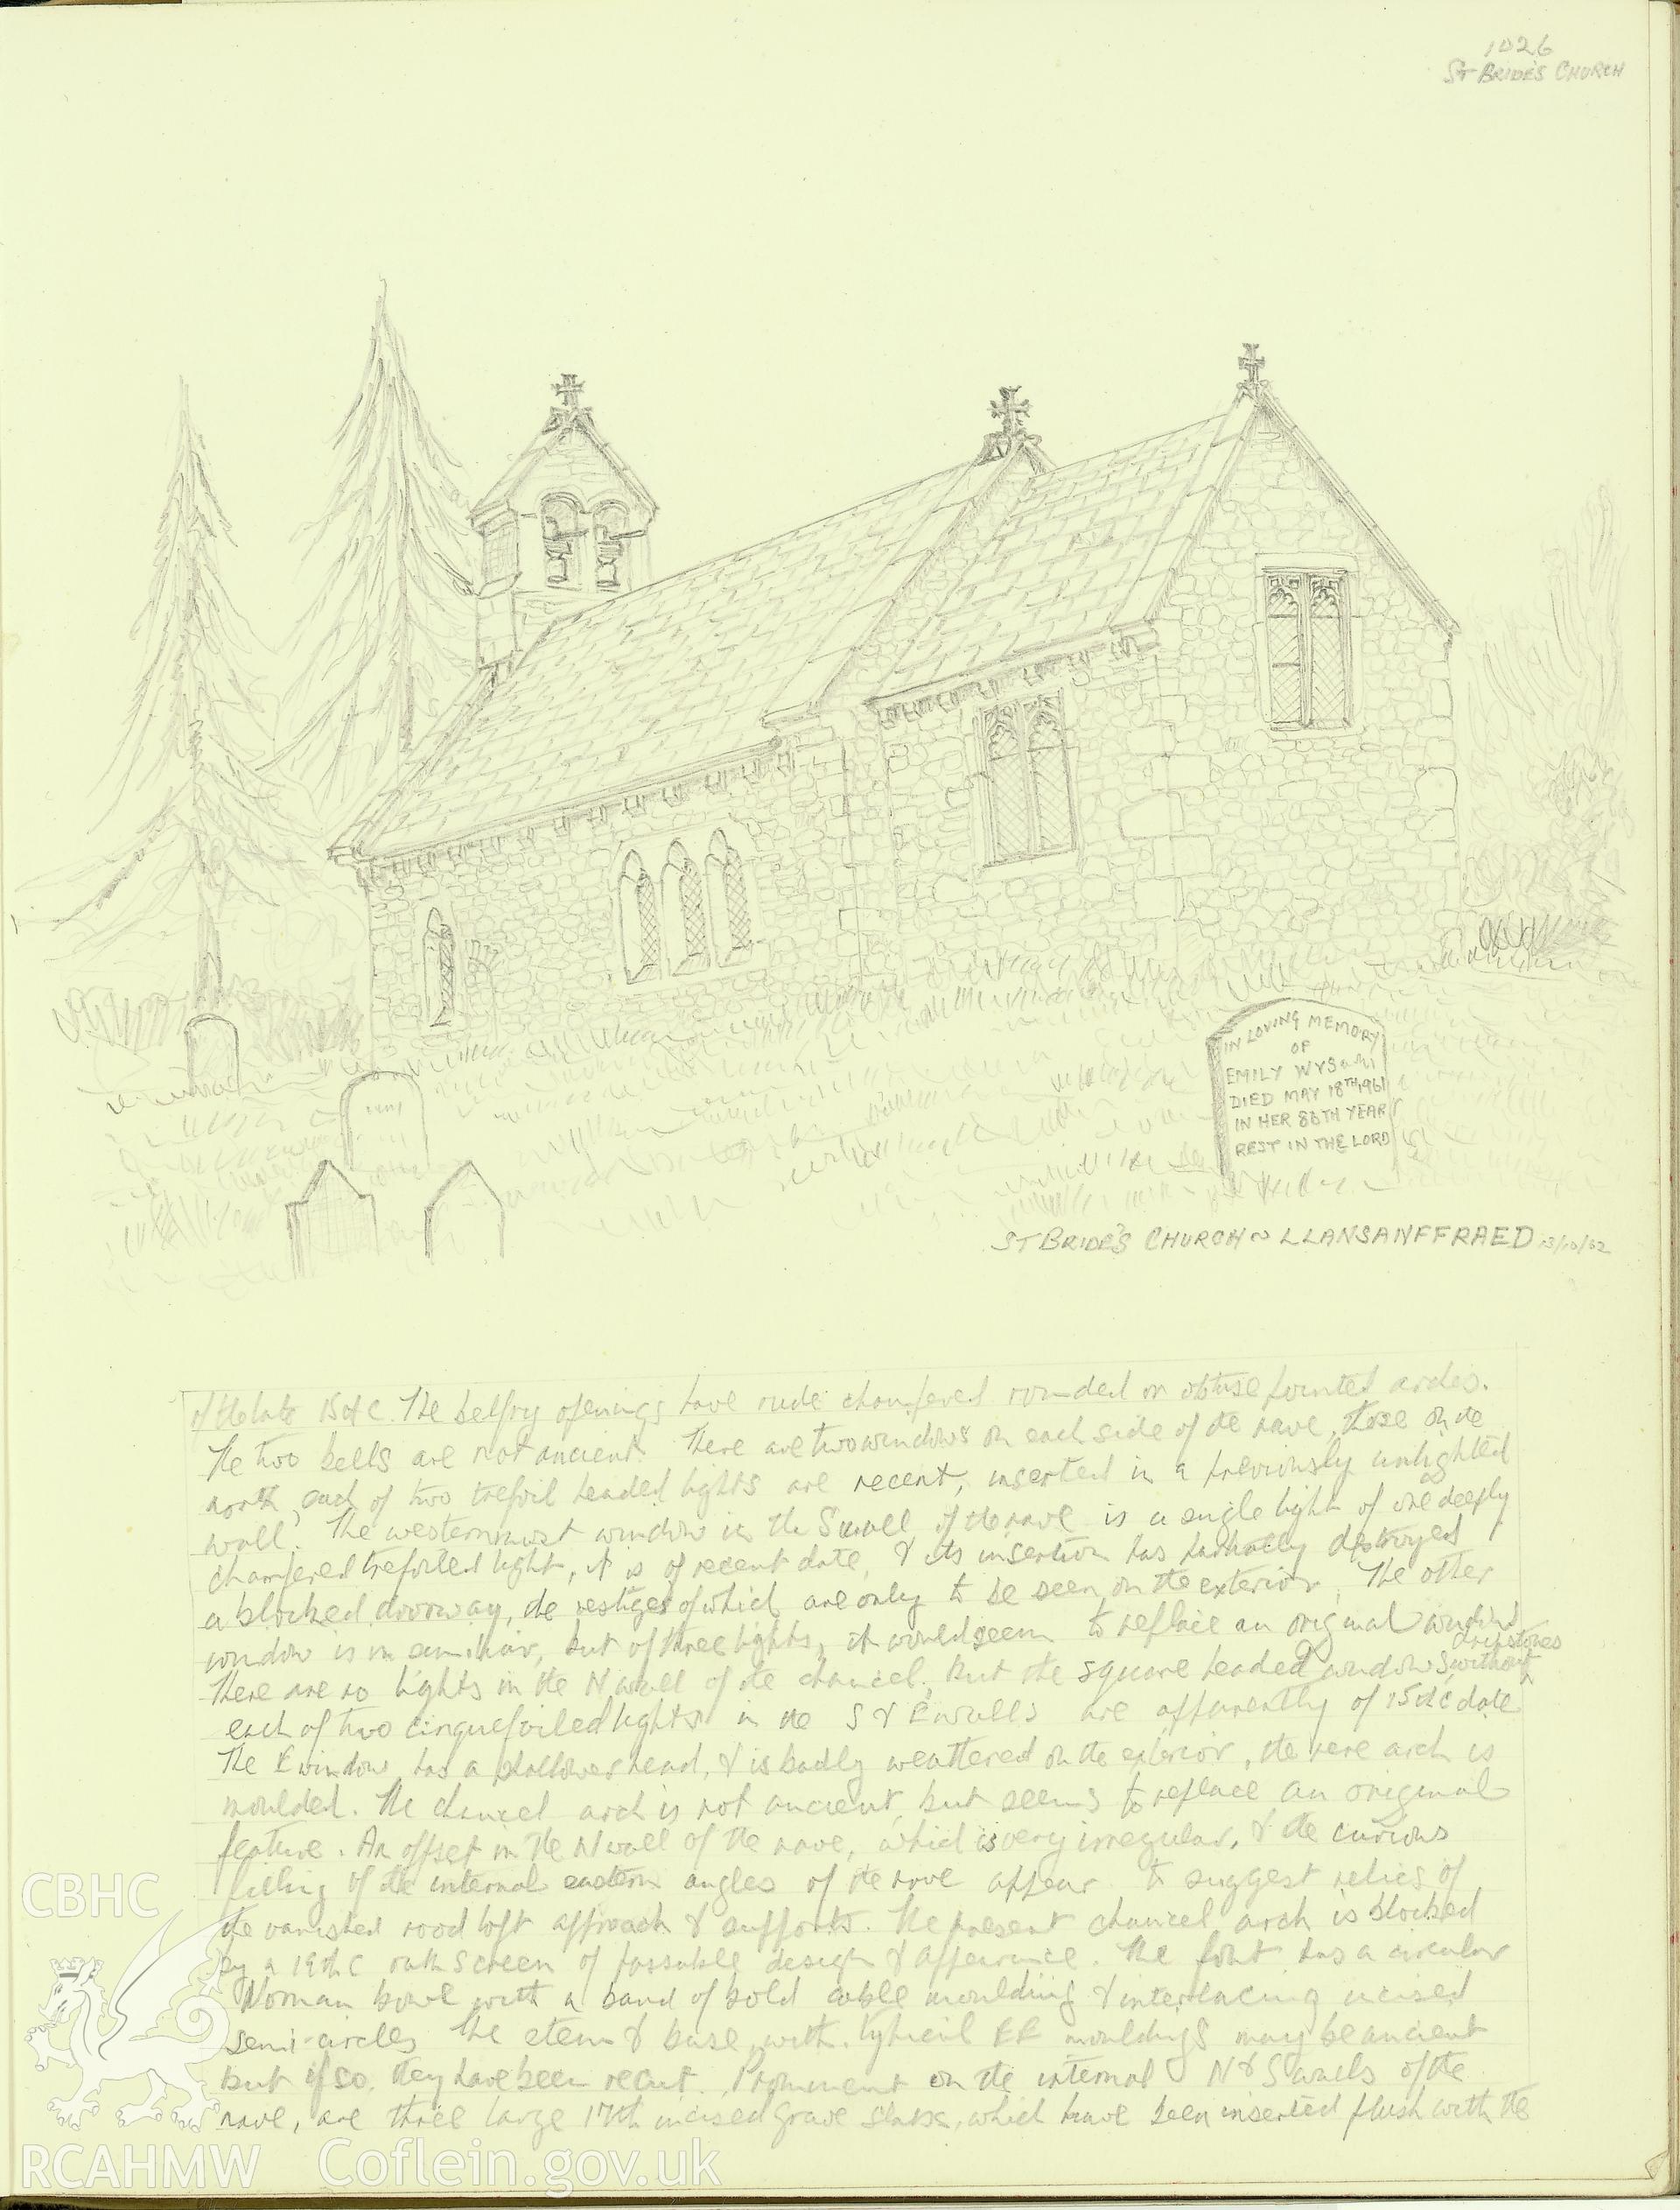 1026
ST BRIDE'S CHURCH
IN LOVING MEMORY
OF
EMILY
DIED MAY 18TH 1961
IN HER 86TH YEAR
REST IN THE LORD
ST BRIDE'S CHURCH ~ LLANSANFFRAED 13/10/62
of the late 15th C. The belfry openings have rude chamfered rounded or obtuse pointed arches.
The two bells are not ancient. There are two windows on each side of the nave, those on the
north, each of two trefoil headed lights are recent, inserted in a previously unlighted
wall. The westernmost window in the S wall of the nave is a single light of one deeply
chamfered trefoiled light, it is of recent date, & its insertion has partially destroyed
a blocked doorway, the vestiges of which are only to be seen on the exterior. The other
window is similar, but of three lights, it would seem to replace an original window
dripstones
There are no lights in the N wall of the chancel, but the square headed windows, without
each of two cinquefoiled lights in the S & E walls are apparently of 15th C date
The E window has a shallower head, & is badly weathered on the exterior, the rere arch is
moulded. The chancel arch is not ancient, but seems to replace an original
feature. An offset in the N wall of the nave, which is very irregular, & the curious
filling of the internal eastern angles of the nave appear to suggest relics of
the vanished rood loft approach & supports. The present chancel arch is blocked
by a 19th C oak screen of passable design & appearance. The font has a circular
Norman bowl with a band of bold cable moulding & interlacing incised
semi-circles The stem & base, with typical EE mouldings may be ancient
but if so, they have been recut. Prominent on the internal N & S walls of the
nave, are three large 17th incised grave slabs, which have been inserted flush with the
CBHC
RCAHMW Coflein.gov.uk